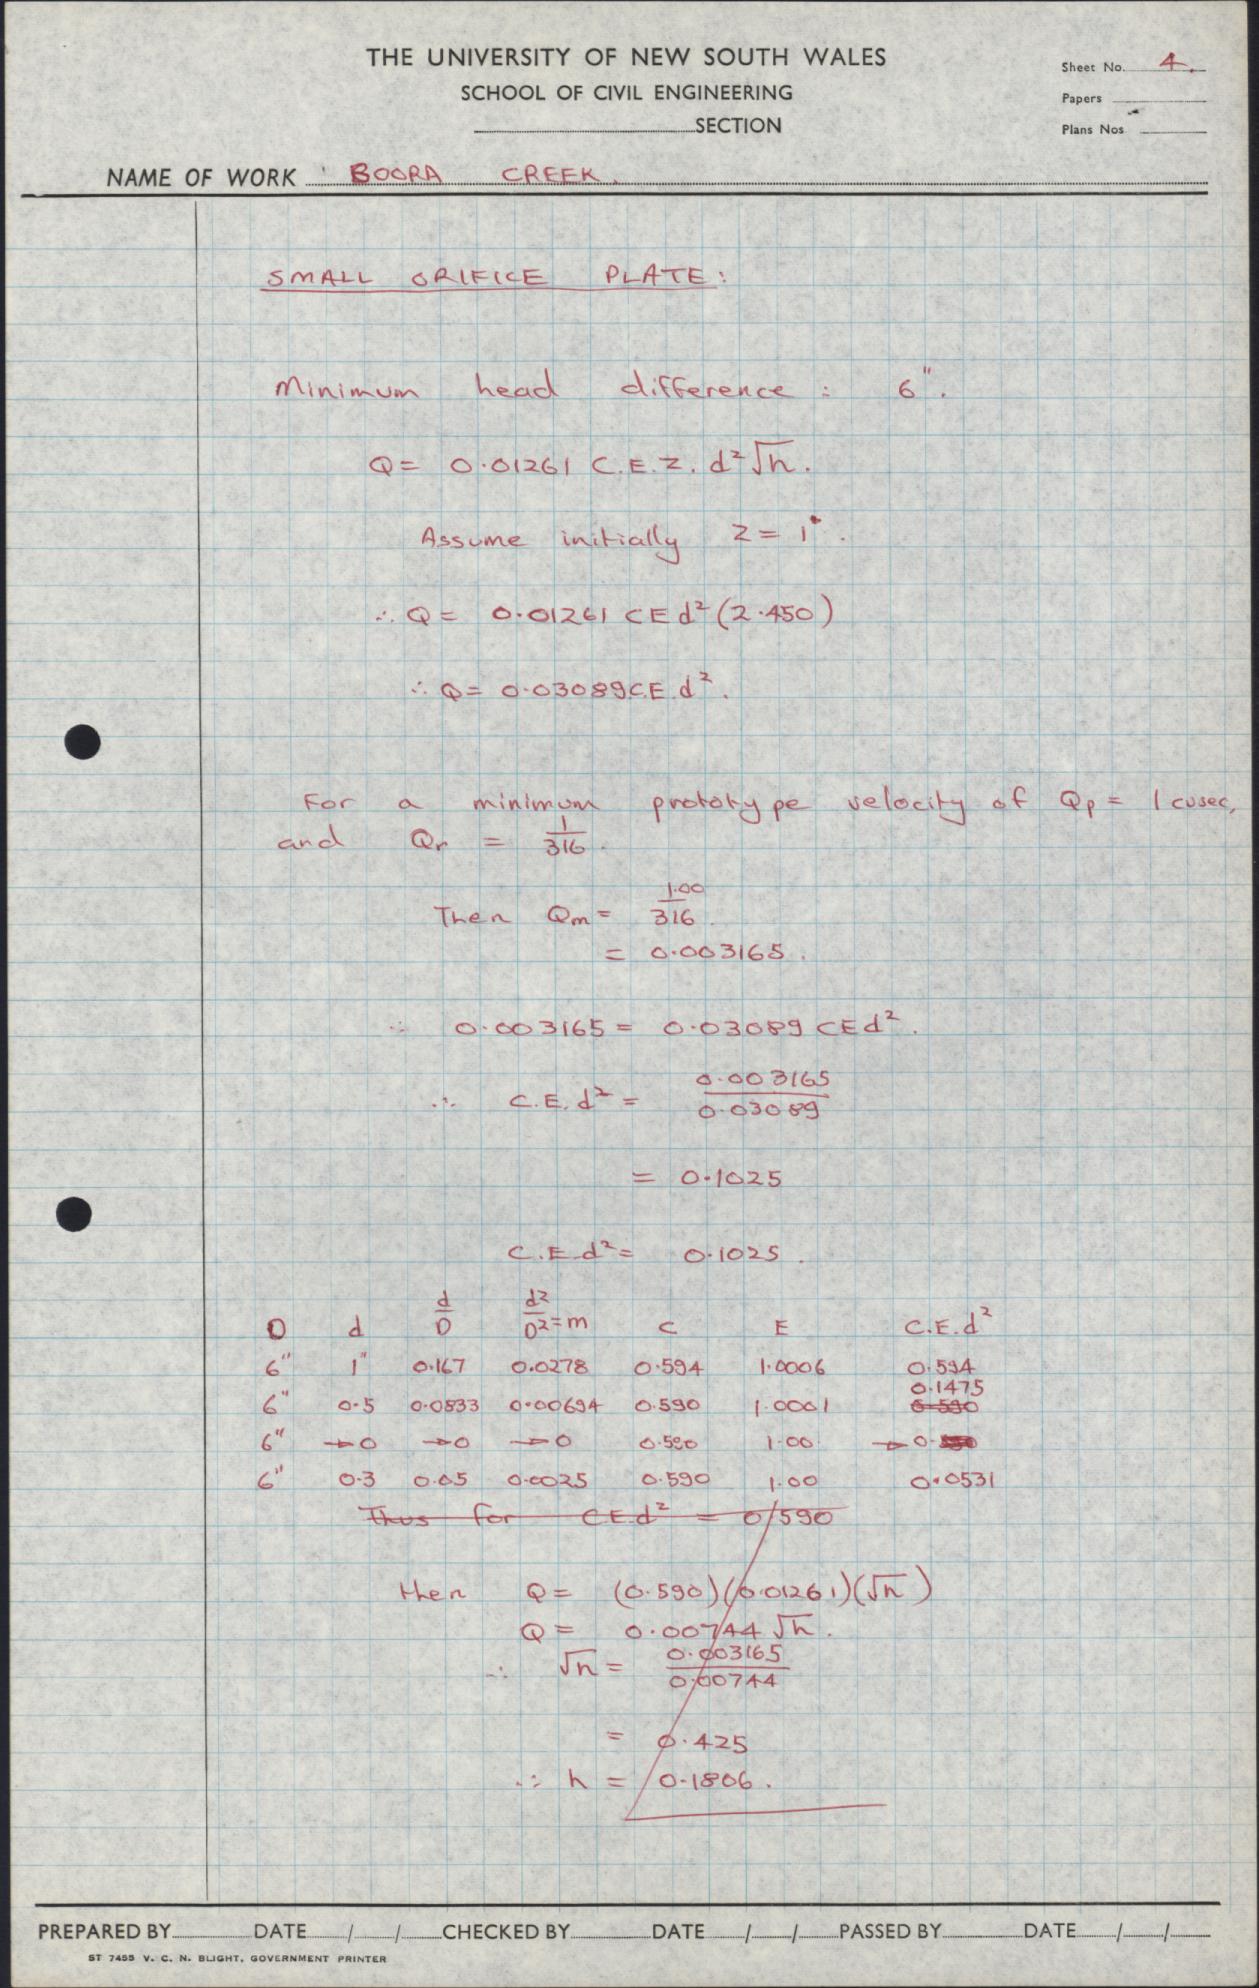 THE UNIVERSITY OF NEW SOUTH WALES
SCHOOL OF CIVIL ENGINEERING
SECTION
Sheet No. 4.
Papers
Plans Nos
NAME OF WORK BOORA CREEK.
SMALL ORIFICE PLATE:
Minimum head difference : 6".
Q = 0.01261 C.E.Z. d²√h.
Assume initially Z = 1.
∴ Q = 0.01261 C E d² (2.450)
∴ Q = 0.03089 C.E. d².
For a minimum prototype velocity of Qp = 1 cusec,
and Qr = 1/316.
Then Qm = 1.00/316.
= 0.003165.
∴ 0.003165 = 0.03089 C E d².
∴ C.E. d² = 0.003165/0.03089
= 0.1025
C.E.d² = 0.1025.
D d d/D d²/D² = m C E C.E.d²
6" 1" 0.167 0.0278 0.594 1.0006 0.594
0.1475
6" 0.5 0.0833 0.00694 0.590 1.0001 0.590
6" →0 →0 →0 0.590 1.00 →0.
6" 0.3 0.05 0.0025 0.590 1.00 0.0531
Thus for C.E.d² = 0.590
then Q = (0.590)(0.01261)(√h)
Q = 0.00744 √h.
∴ √h = 0.003165/0.00744
= 0.425
∴ h = 0.1806.
PREPARED BY DATE / / CHECKED BY DATE / / PASSED BY DATE / /
ST 7455 V. C. N. BLIGHT, GOVERNMENT PRINTER